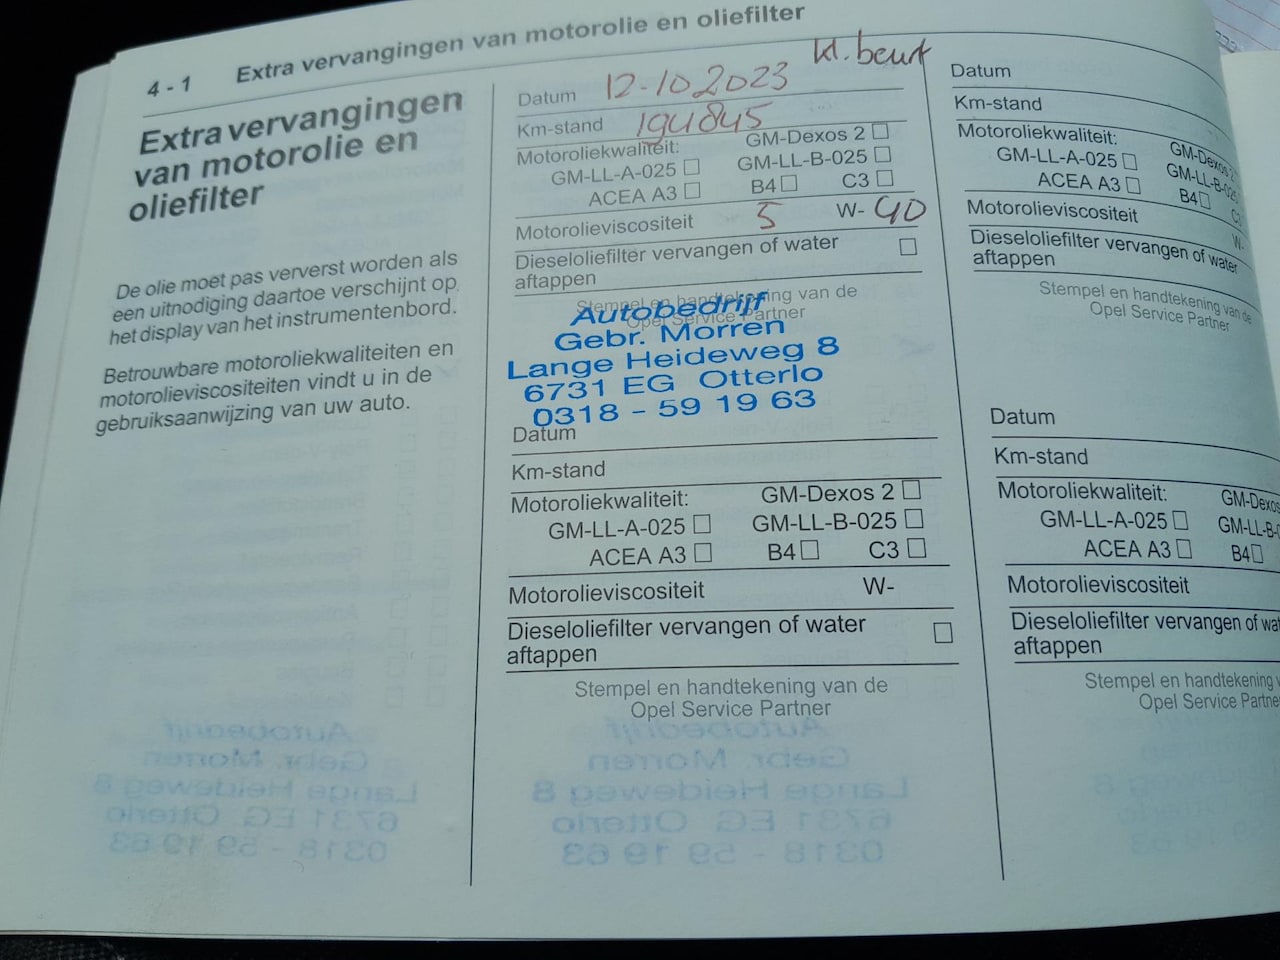 4 - 1 Extra vervangingen van motorolie en oliefilter
Extra vervangingen
van motorolie en
oliefilter
De olie moet pas ververst worden als
een uitnodiging daartoe verschijnt op
het display van het instrumentenbord.
Betrouwbare motoroliekwaliteiten en
motorolieviscositeiten vindt u in de
gebruiksaanwijzing van uw auto.
kl. beurt
Datum 12-10-2023
Km-stand 194845
Motoroliekwaliteit: GM-Dexos 2
GM-LL-A-025 GM-LL-B-025
ACEA A3 B4 C3
Motorolieviscositeit 5 W- 40
Dieseloliefilter vervangen of water
aftappen
Stempel en handtekening van de
Opel Service Partner
Autobedrijf
Gebr. Morren
Lange Heideweg 8
6731 EG Otterlo
0318 - 59 19 63
Datum
Km-stand
Motoroliekwaliteit: GM-Dexos 2
GM-LL-A-025 GM-LL-B-025
ACEA A3 B4 C3
Motorolieviscositeit W-
Dieseloliefilter vervangen of water
aftappen
Stempel en handtekening van de
Opel Service Partner
Datum
Km-stand
Motoroliekwaliteit: GM-Dexos 2
GM-LL-A-025 GM-LL-B-025
ACEA A3 B4 C3
Motorolieviscositeit W-
Dieseloliefilter vervangen of water
aftappen
Stempel en handtekening van de
Opel Service Partner
Datum
Km-stand
Motoroliekwaliteit: GM-Dexos
GM-LL-A-025 GM-LL-B-0
ACEA A3 B4
Motorolieviscositeit
Dieseloliefilter vervangen of wat
aftappen
Stempel en handtekening v
Opel Service Partne